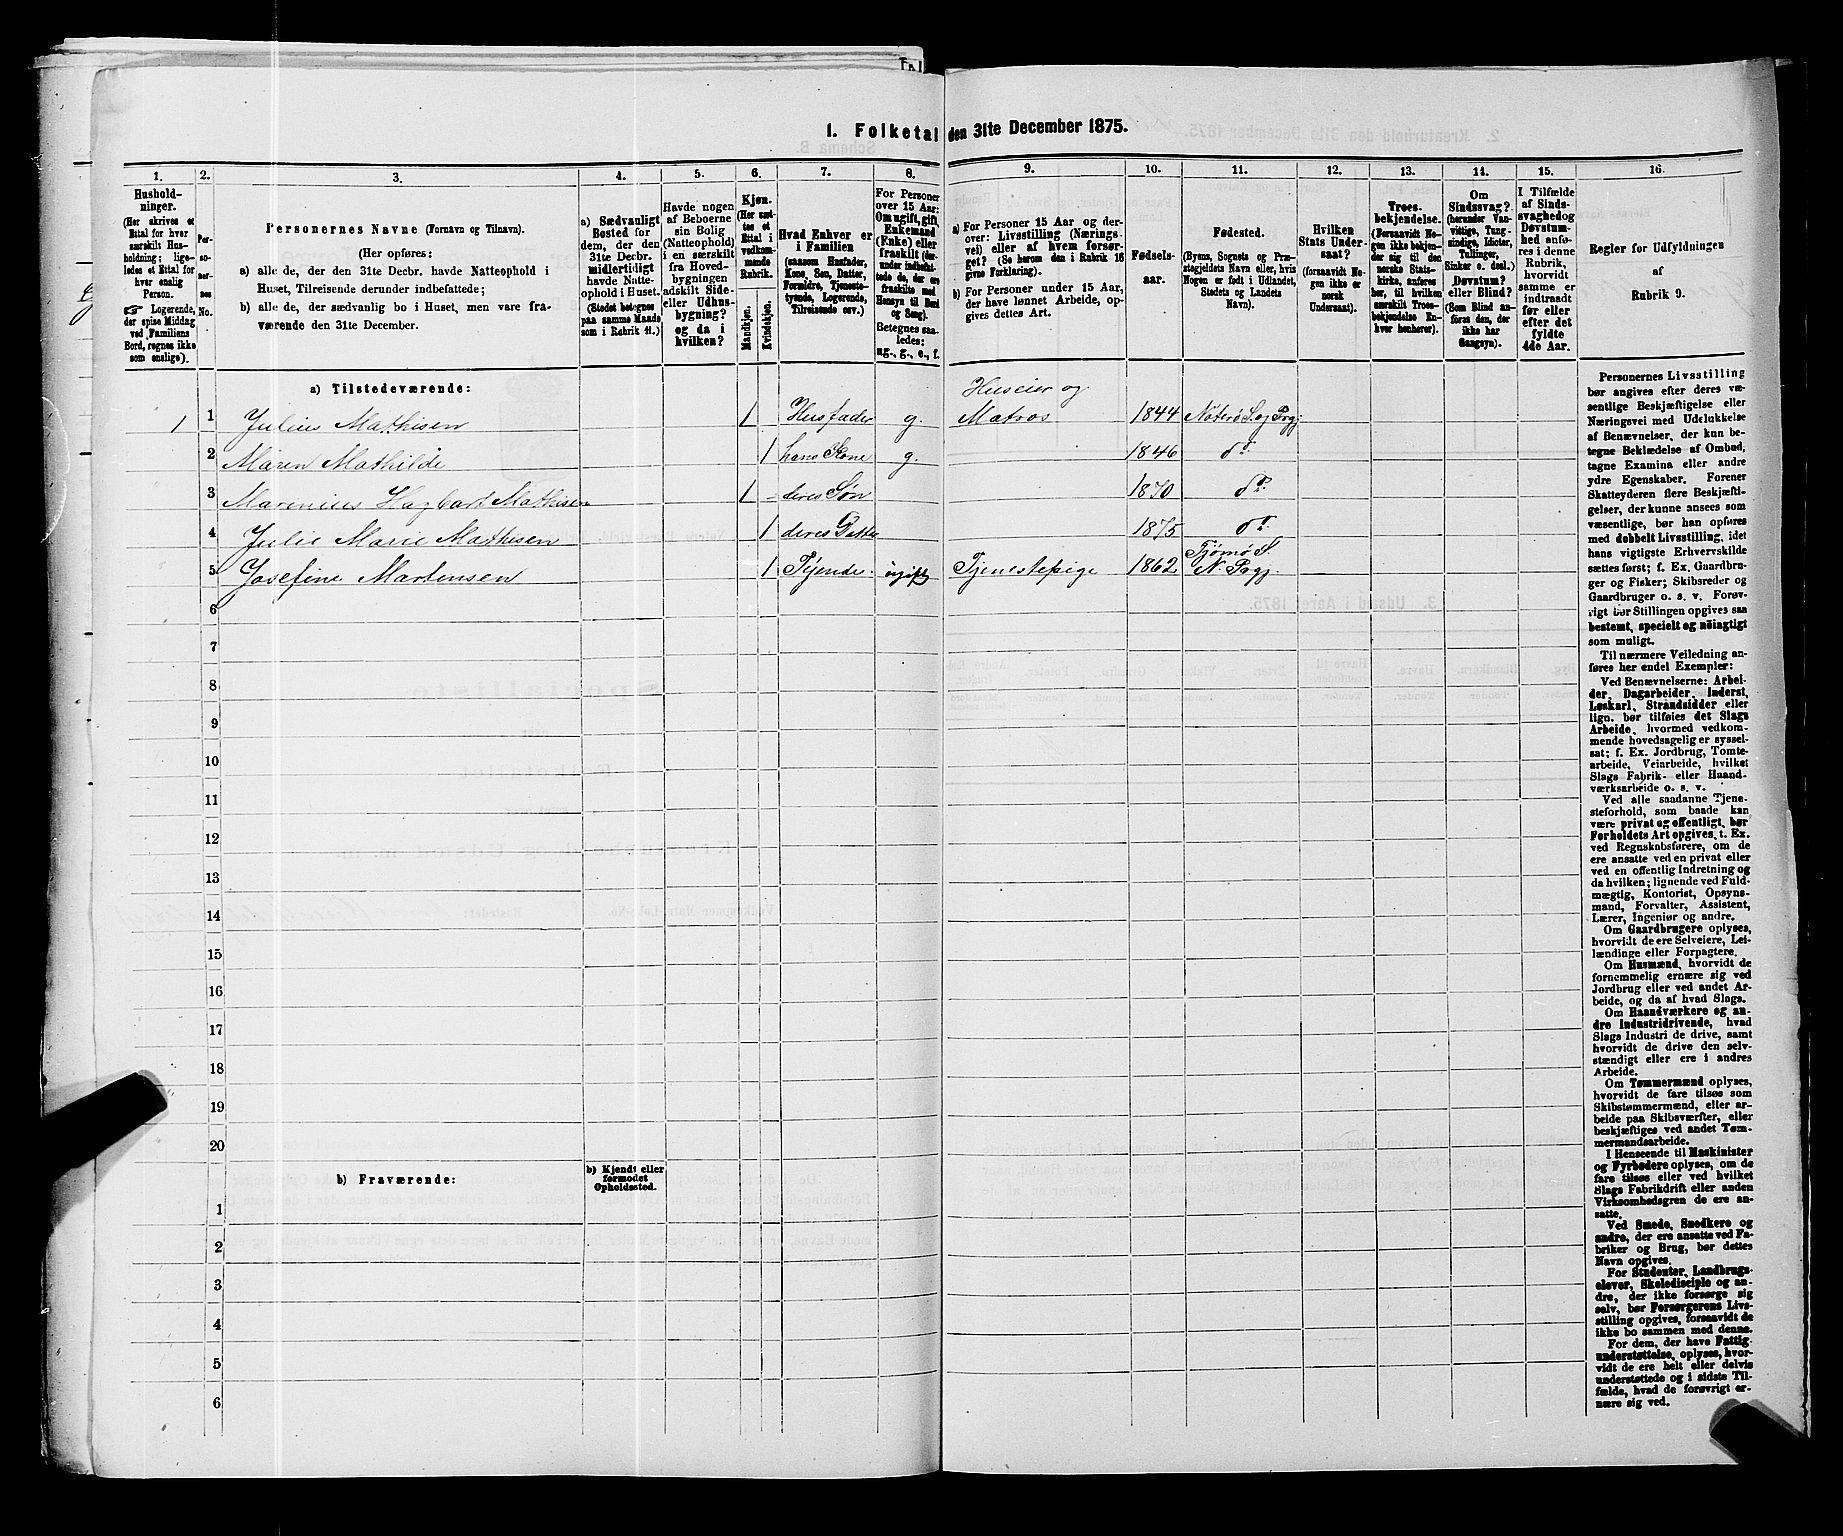 1. Folketal den 31te December 1875.
1. 2. 3. 4. 5. 6. 7. 8. 9. 10. 11. 12. 13. 14. 15. 16.
Hushold-
ninger.
(Her skrives et
Ettal for hver
særskilt Hus-
holdning; lige-
ledes et Ettal for
hver enslig
Person.
☞ Logerende,
der spise Middag
ved Familiens
Bord, regnes ikke
som enslige).
Per-
so-
ner-
nes
No.
Personernes Navne (Fornavn og Tilnavn).
(Her opføres:
a) alle de, der den 31te Decbr. havde Natteophold i
Huset, Tilreisende derunder indbefattede;
b) alle de, der sædvanlig bo i Huset, men vare fra-
værende den 31te December.
a) Sædvanligt
Bosted for
dem, der den
31te Decbr.
midlertidigt
havde Natte-
ophold i Huset.
(Stedet betegnes
paa samme Maade
som i Rubrik 11.)
Havde nogen
af Beboerne
sin Bolig
(Natteophold)
i en særskilt
fra Hoved-
bygningen
adskilt Side-
eller Udhus-
bygning?
og da i
hvilken?
Kjøn.
(Her sæt-
tes et
Ettal i
vedkom-
mende
Rubrik.
Mandkjøn.
Kvindekjøn.
Hvad Enhver er
i Familien
(saasom Husfader,
Kone, Søn, Datter,
Forældre, Tjeneste-
tyende, Logerende,
Tilreisende osv.)
For Personer
over 15 Aar:
Om ugift, gift,
Enkemand
(Enke) eller
fraskilt (her-
under indbefat-
tede de, der ere
fraskilte med
Hensyn til Bord
og Seng).
Betegnes saa-
ledes:
ug., g., e., f.
a) For Personer 15 Aar og der-
over: Livsstilling (Nærings-
vei) eller af hvem forsør-
get? (Se herom den i Rubrik 16
givne Forklaring).
b) For Personer under 15 Aar,
der have lønnet Arbeide, op-
gives dettes Art.
Fødsels-
aar.
Fødested.
(Byens, Sognets og Præ-
stegjeldets Navn eller, hvis
Nogen er født i Udlandet,
Stedets og Landets
Navn).
Hvilken
Stats Under-
saat?
(forsaavidt No-
gen ikke er
norsk
Undersaat).
Troes-
bekjendelse.
(Forsaavidt No-
gen ikke bekjen-
der sig til den
norske Stats-
kirke, anføres
her, til hvilken
særskilt Troes-
bekjendelse En-
hver henhører).
Om
Sindssvag?
(herunder Van-
vittige, Tung-
sindige, Idioter,
Tullinger,
Sinker o. desl.)
Døvstum?
eller Blind?
(Som Blind an-
føres den, der
ikke har
Gangsyn).
I Tilfælde
af Sinds-
svaghed og
Døvstum-
hed anfø-
res i denne
Rubrik,
hvorvidt
samme er
indtraadt
før eller
efter det
fyldte
4de Aar.
Regler for Udfyldningen
af
Rubrik 9.
a) Tilstedeværende:
Huseier og
1 1 Julius Mathisen 1 Husfader g. Matros 1844 Nøterø S. og Prgj
2 Maren Mathilde 1 hans Kone g. 1846 do.
3 Marenius Hagbart Mathisen 1 deres Søn 1870 do.
4 Julie Marie Mathisen 1 deres Datter 1875 do.
Tjömö S.
5 Josefine Martensen 1 Tjende. ugift Tjenestepige 1862 N. Pregj.
6
7
8
9
10
11
12
13
14
15
16
17
18
19
20
b) Fraværende:
b) Kjendt eller
formodet
Opholdssted.
1
2
3
4
5
6
Personernes Livsstilling
bør angives efter deres væ-
sentlige Beskjæftigelse eller
Næringsvei med Udelukkelse
af Benævnelser, der kun be-
tegne Beklædelse af Ombud,
tagne Examina eller andre
ydre Egenskaber. Forener
Skatteyderen flere Beskjæfti-
gelser, der kunne ansees som
væsentlige, bør han opføres
med dobbelt Livsstilling, idet
hans vigtigste Erhvervskilde
sættes først; f. Ex. Gaardbru-
ger og Fisker; Skibsreder og
Gaardbruger o. s. v. Forøv-
rigt bør Stillingen opgives saa
bestemt, specielt og nöiagtigt
som muligt.
Til nærmere Veiledning an-
føres her endel Exempler:
Ved Benævnelserne: Arbei-
der, Dagarbeider, Inderst,
Løskarl, Strandsidder eller
lign. bør tilføies det Slags
Arbeide, hvormed vedkom-
mende hovedsagelig er syssel-
sat; f. Ex. Jordbrug, Tomte-
arbeide, Veiarbeide, hvilket
Slags Fabrik- eller Haand-
værksarbeide o. s. v.
Ved alle saadanne Tjene-
steforhold, som baade kan
være privat og offentligt, bør
Forholdets Art opgives, t. Ex.
ved Regnskabsførere, om de
ere ansatte ved en privat eller
ved en offentlig Indretning og
da hvilken; lignende ved Fuld-
mægtig, Kontorist, Opsyns-
mand, Forvalter, Assistent,
Lærer, Ingeniør og andre.
Om Gaardbrugere oplyses,
hvorvidt de ere Selveiere, Lei-
lændinge eller Forpagtere.
Om Husmænd, hvorvidt de
fornemmelig ernære sig ved
Jordbrug eller ved andet Ar-
beide, og da af hvad Slags.
Om Haandværkere og an-
dre Industridrivende, hvad
Slags Industri de drive, samt
hvorvidt de drive den selv-
stændigt eller ere i andres
Arbeide.
Om Tømmermænd oplyses,
hvorvidt de fare tilsøs som
Skibstømmermænd, eller ar-
beide paa Skibsværfter, eller
beskjæftiges ved andet Tøm-
mermandsarbeide.
I Henseende til Maskinister
og Fyrbødere oplyses, om de
fare tilsøs eller ved hvilket
Slags Fabrikdrift eller anden
Virksomhedsgren de ere an-
satte.
Ved Smede, Snedkere og
andre, der ere ansatte ved Fa-
briker og Brug, bør dettes
Navn opgives.
For Studenter, Landbrugs-
elever, Skoledisciple og an-
dre, der ikke forsørge sig
selv, bør Forsørgerens Livs-
stilling opgives, forsaavidt de
ikke bo sammen med denne.
For dem, der have Fattig-
understøttelse, oplyses, hvor-
vidt de ere helt eller delvis
understøttede og i sidste Til-
fælde, hvad de forøvrigt er-
nære sig ved.